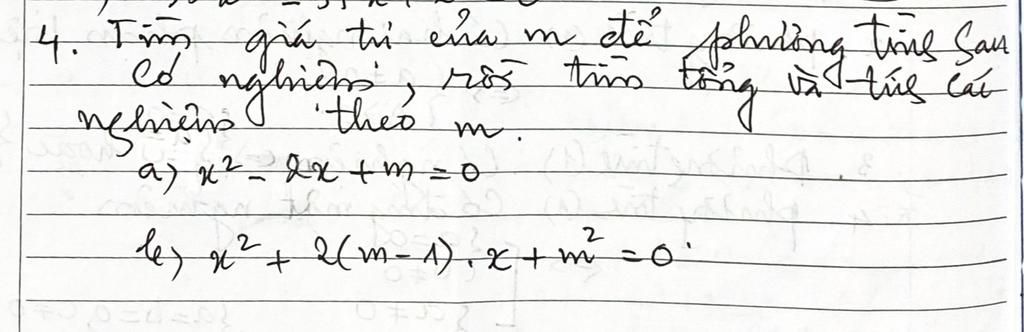 4. Tìm giá trị của m để phương trình sau
có nghiệm, rồi tìm tổng và tích các
nghiệm theo m.
a) x² - 2x + m = 0
b) x² + 2(m-1).x + m² = 0